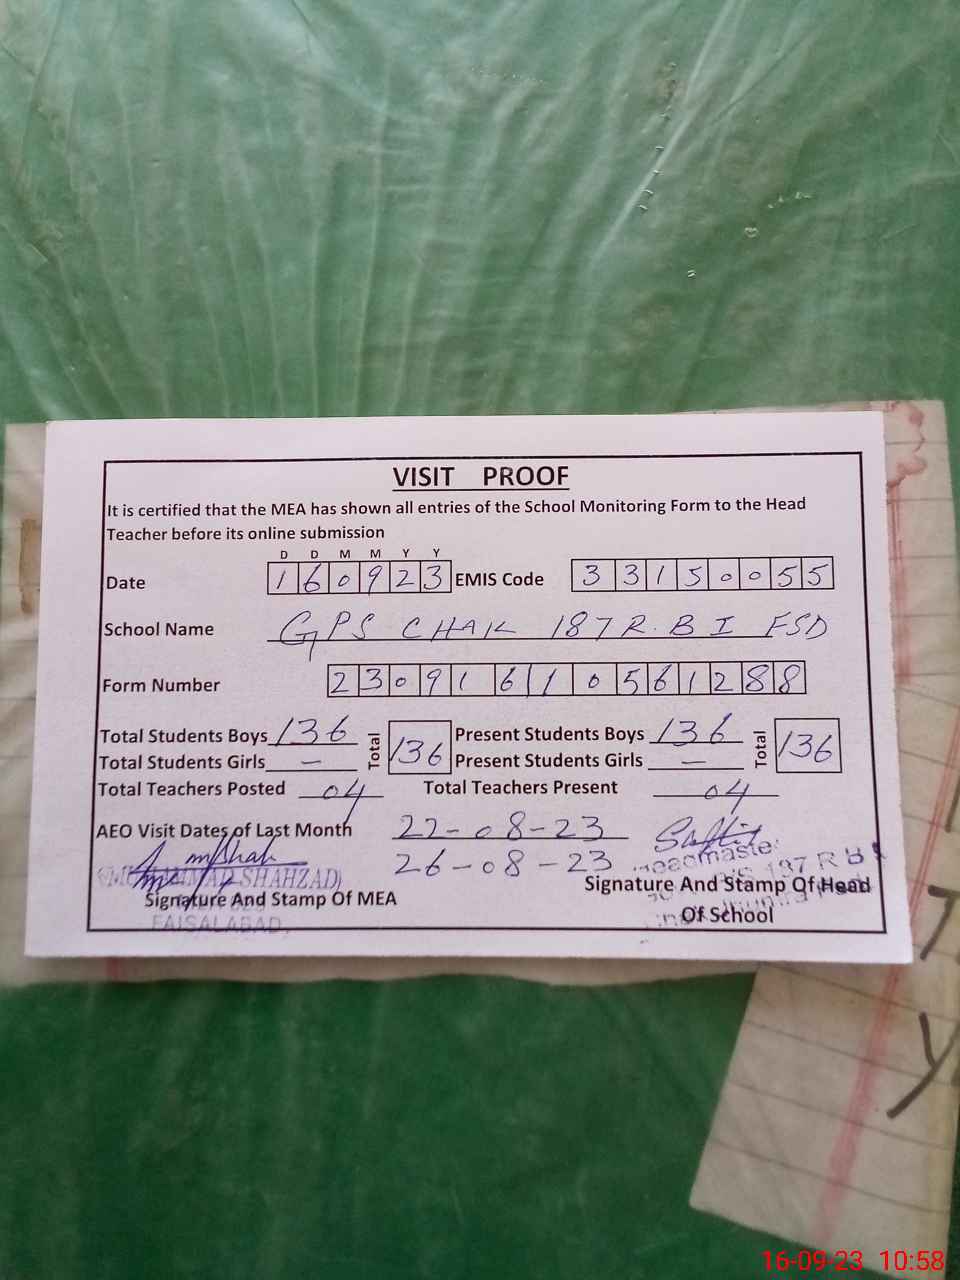 VISIT PROOF
It is certified that the MEA has shown all entries of the School Monitoring Form to the Head
Teacher before its online submission
D D M M Y Y
Date 160923 EMIS Code 33150055
School Name GPS CHAK 187 R.B I FSD
Form Number 23091610561288
Total Students Boys 136 Total 136 Present Students Boys 136 Total 136
Total Students Girls — Present Students Girls —
Total Teachers Posted 04 Total Teachers Present 04
AEO Visit Dates of Last Month 22-08-23
26-08-23
Headmaster
187 R B
SHAHZAD)
Signature And Stamp Of MEA
Signature And Stamp Of Head
Of School
FAISALABAD.
T
y
16-09-23 10:58